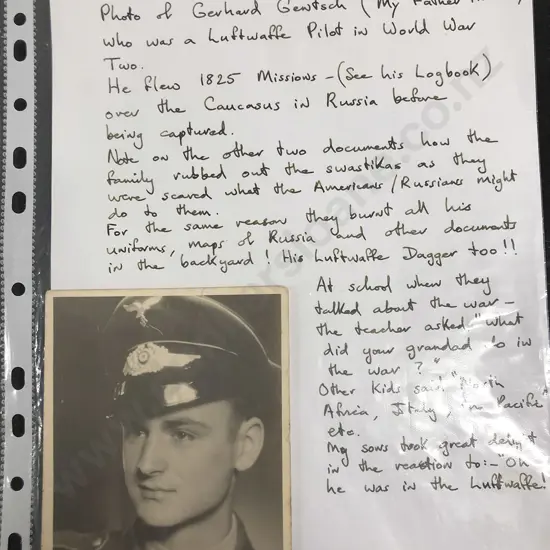 Photo of Gerhard Gentsch (My Father
who was a Luftwaffe Pilot in World War
Two.
He flew 1825 Missions - (See his Logbook)
over the Caucasus in Russia before
being captured.
Note on the other two documents how the
family rubbed out the swastikas as they
were scared what the Americans/Russians might
do to them.
For the same reason they burnt all his
uniforms, maps of Russia and other documents
in the backyard! His Luftwaffe Dagger too!!
At school when they
talked about the war -
the teacher asked "What
did your grandad do in
the war?"
Other kids said "North
Africa, Italy, in Pacific"
etc.
My sons took great delight
in the reaction to:- "Oh
he was in the Luftwaffe!